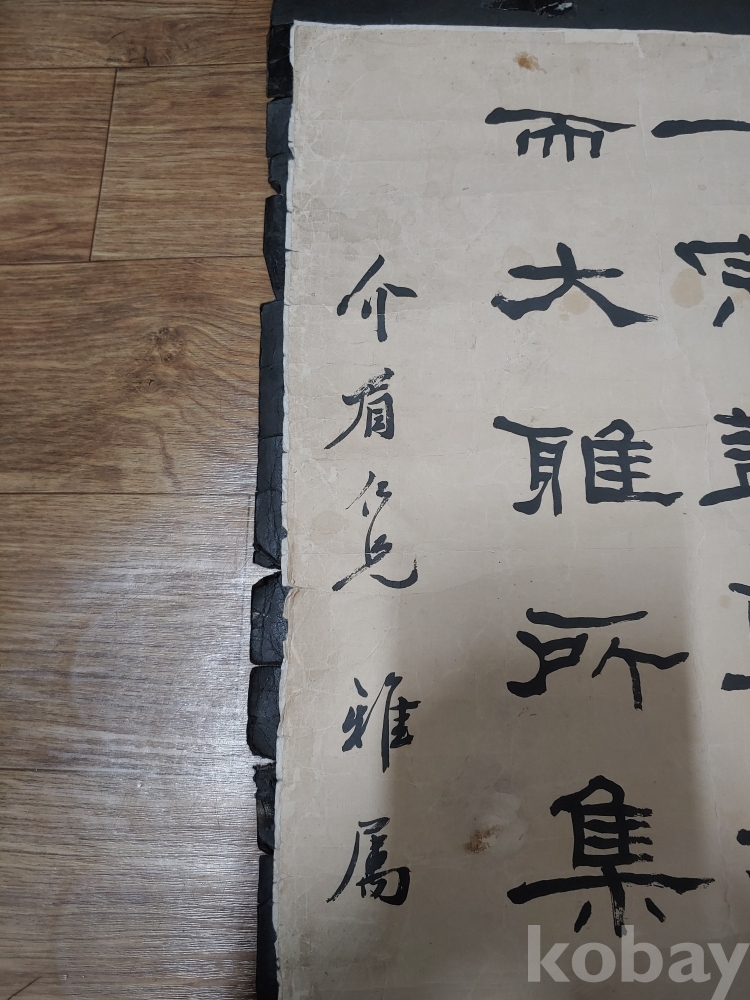 一宗
而大雅所集
介眉仁兄 雅属
kobay